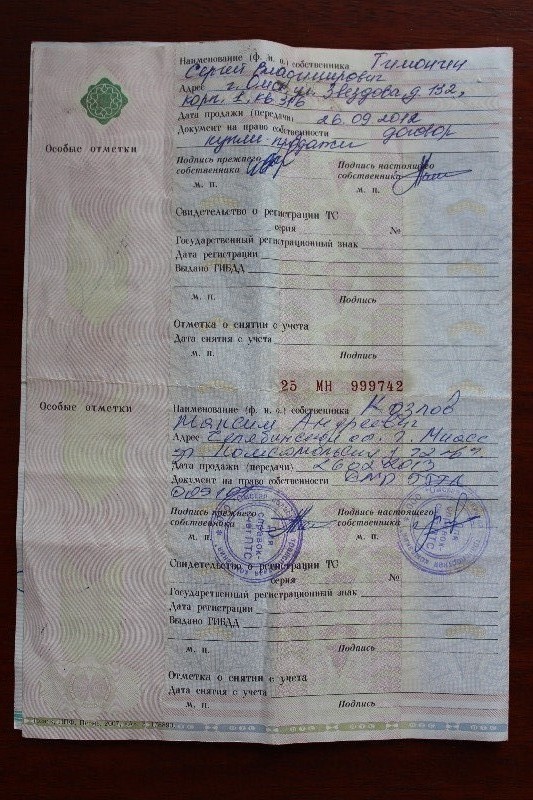 Наименование (ф. и. о.) собственника Тимонин
Сергей Владимирович
Адрес г. Омск ул. Звездова, д 132,
корп. 1, кв. 316
Дата продажи (передачи) 26.09.2012
Документ на право собственности договор
купли-продажи
Особые отметки
Подпись прежнего собственника
Подпись настоящего собственника
м. п.
м. п.
Свидетельство о регистрации ТС
серия №
Государственный регистрационный знак
Дата регистрации
Выдано ГИБДД
м. п. Подпись
Отметка о снятии с учета
Дата снятия с учета
м. п. Подпись
25 МН 999742
Особые отметки
Наименование (ф. и. о.) собственника Козлов
Максим Андреевич
Адрес Челябинская г. Миасс
Дата продажи (передачи) 26.02.2013
Документ на право собственности
Подпись прежнего собственника
Подпись настоящего собственника
м. п.
Свидетельство о регистрации ТС
серия №
Государственный регистрационный знак
Дата регистрации
Выдано ГИБДД
м. п. Подпись
Отметка о снятии с учета
Дата снятия с учета
м. п. Подпись